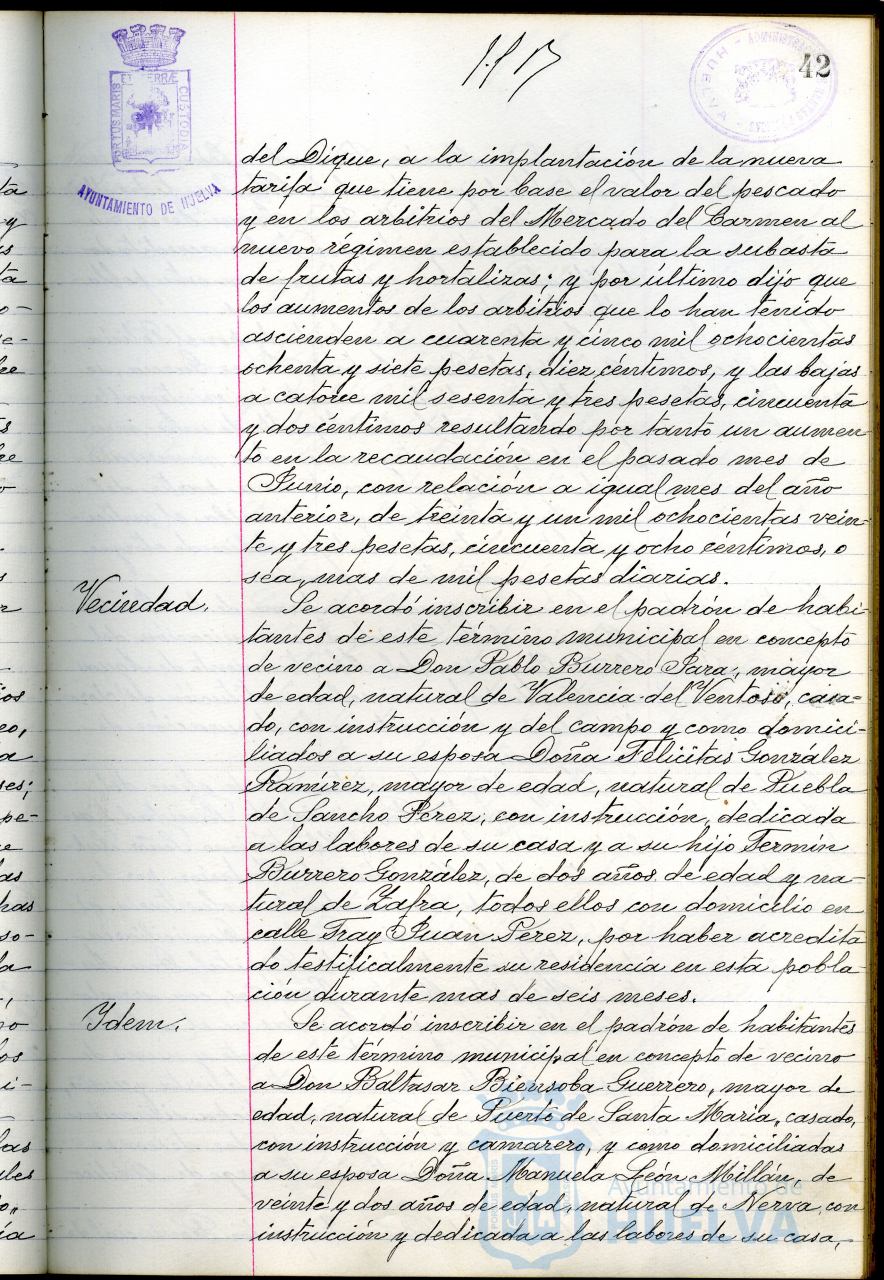 42
PORTUS MARIS ET TERRÆ CUSTODIA
AYUNTAMIENTO DE HUELVA
del Dique, a la implantación de la nueva
tarifa que tiene por base el valor del pescado
y en los arbitrios del Mercado del Carmen al
nuevo régimen establecido para la subasta
de frutas y hortalizas; y por último dijo que
los aumentos de los arbitrios que lo han tenido
ascienden a cuarenta y cinco mil ochocientas
ochenta y siete pesetas, diez céntimos, y las bajas
a catorce mil sesenta y tres pesetas, cincuenta
y dos céntimos resultando por tanto un aumen-
to en la recaudación en el pasado mes de
Junio, con relación a igual mes del año
anterior, de treinta y un mil ochocientas vein-
te y tres pesetas, cincuenta y ocho céntimos, o
sea, mas de mil pesetas diarias.
Vecindad.
Se acordó inscribir en el padrón de habi-
tantes de este término municipal en concepto
de vecino a Don Pablo Burrero Para, mayor
de edad, natural de Valencia del Ventoso, casa-
do, con instrucción y del campo y como domici-
liados a su esposa Doña Felicitas González
Ramírez, mayor de edad, natural de Puebla
de Sancho Perez, con instrucción, dedicada
a las labores de su casa y a su hijo Fermín
Burrero González, de dos años de edad y na-
tural de Zafra, todos ellos con domicilio en
calle Fray Juan Pérez, por haber acredita
do testificalmente su residencia en esta pobla-
ción durante mas de seis meses.
Idem.
Se acordó inscribir en el padrón de habitantes
de este término municipal en concepto de vecino
a Don Baltasar Biensoba Guerrero, mayor de
edad, natural de Puerto de Santa María, casado,
con instrucción y camarero, y como domiciliadas
a su esposa Doña Manuela León Millán, de
veinte y dos años de edad, natural de Nerva, con
instrucción y dedicada a las labores de su casa,
Ayuntamiento de
HUELVA